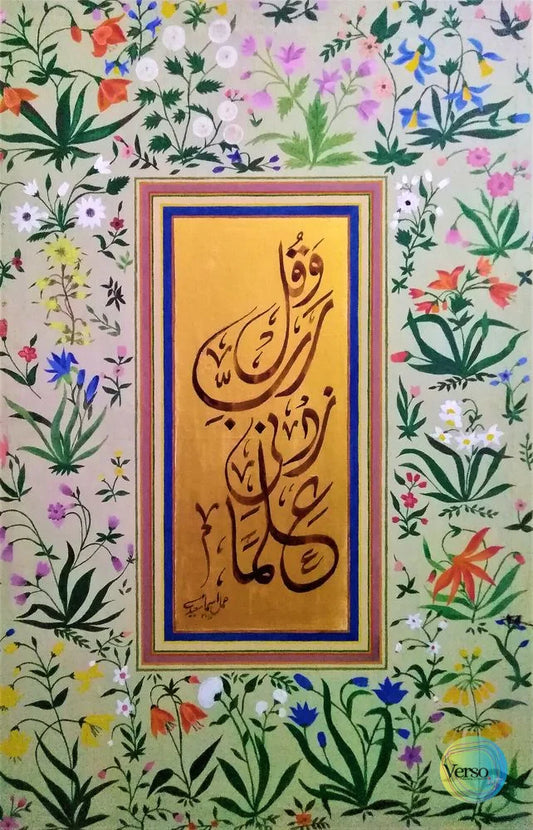 وَقُل
رَبِّ
زدنی
عِلماً
Verso